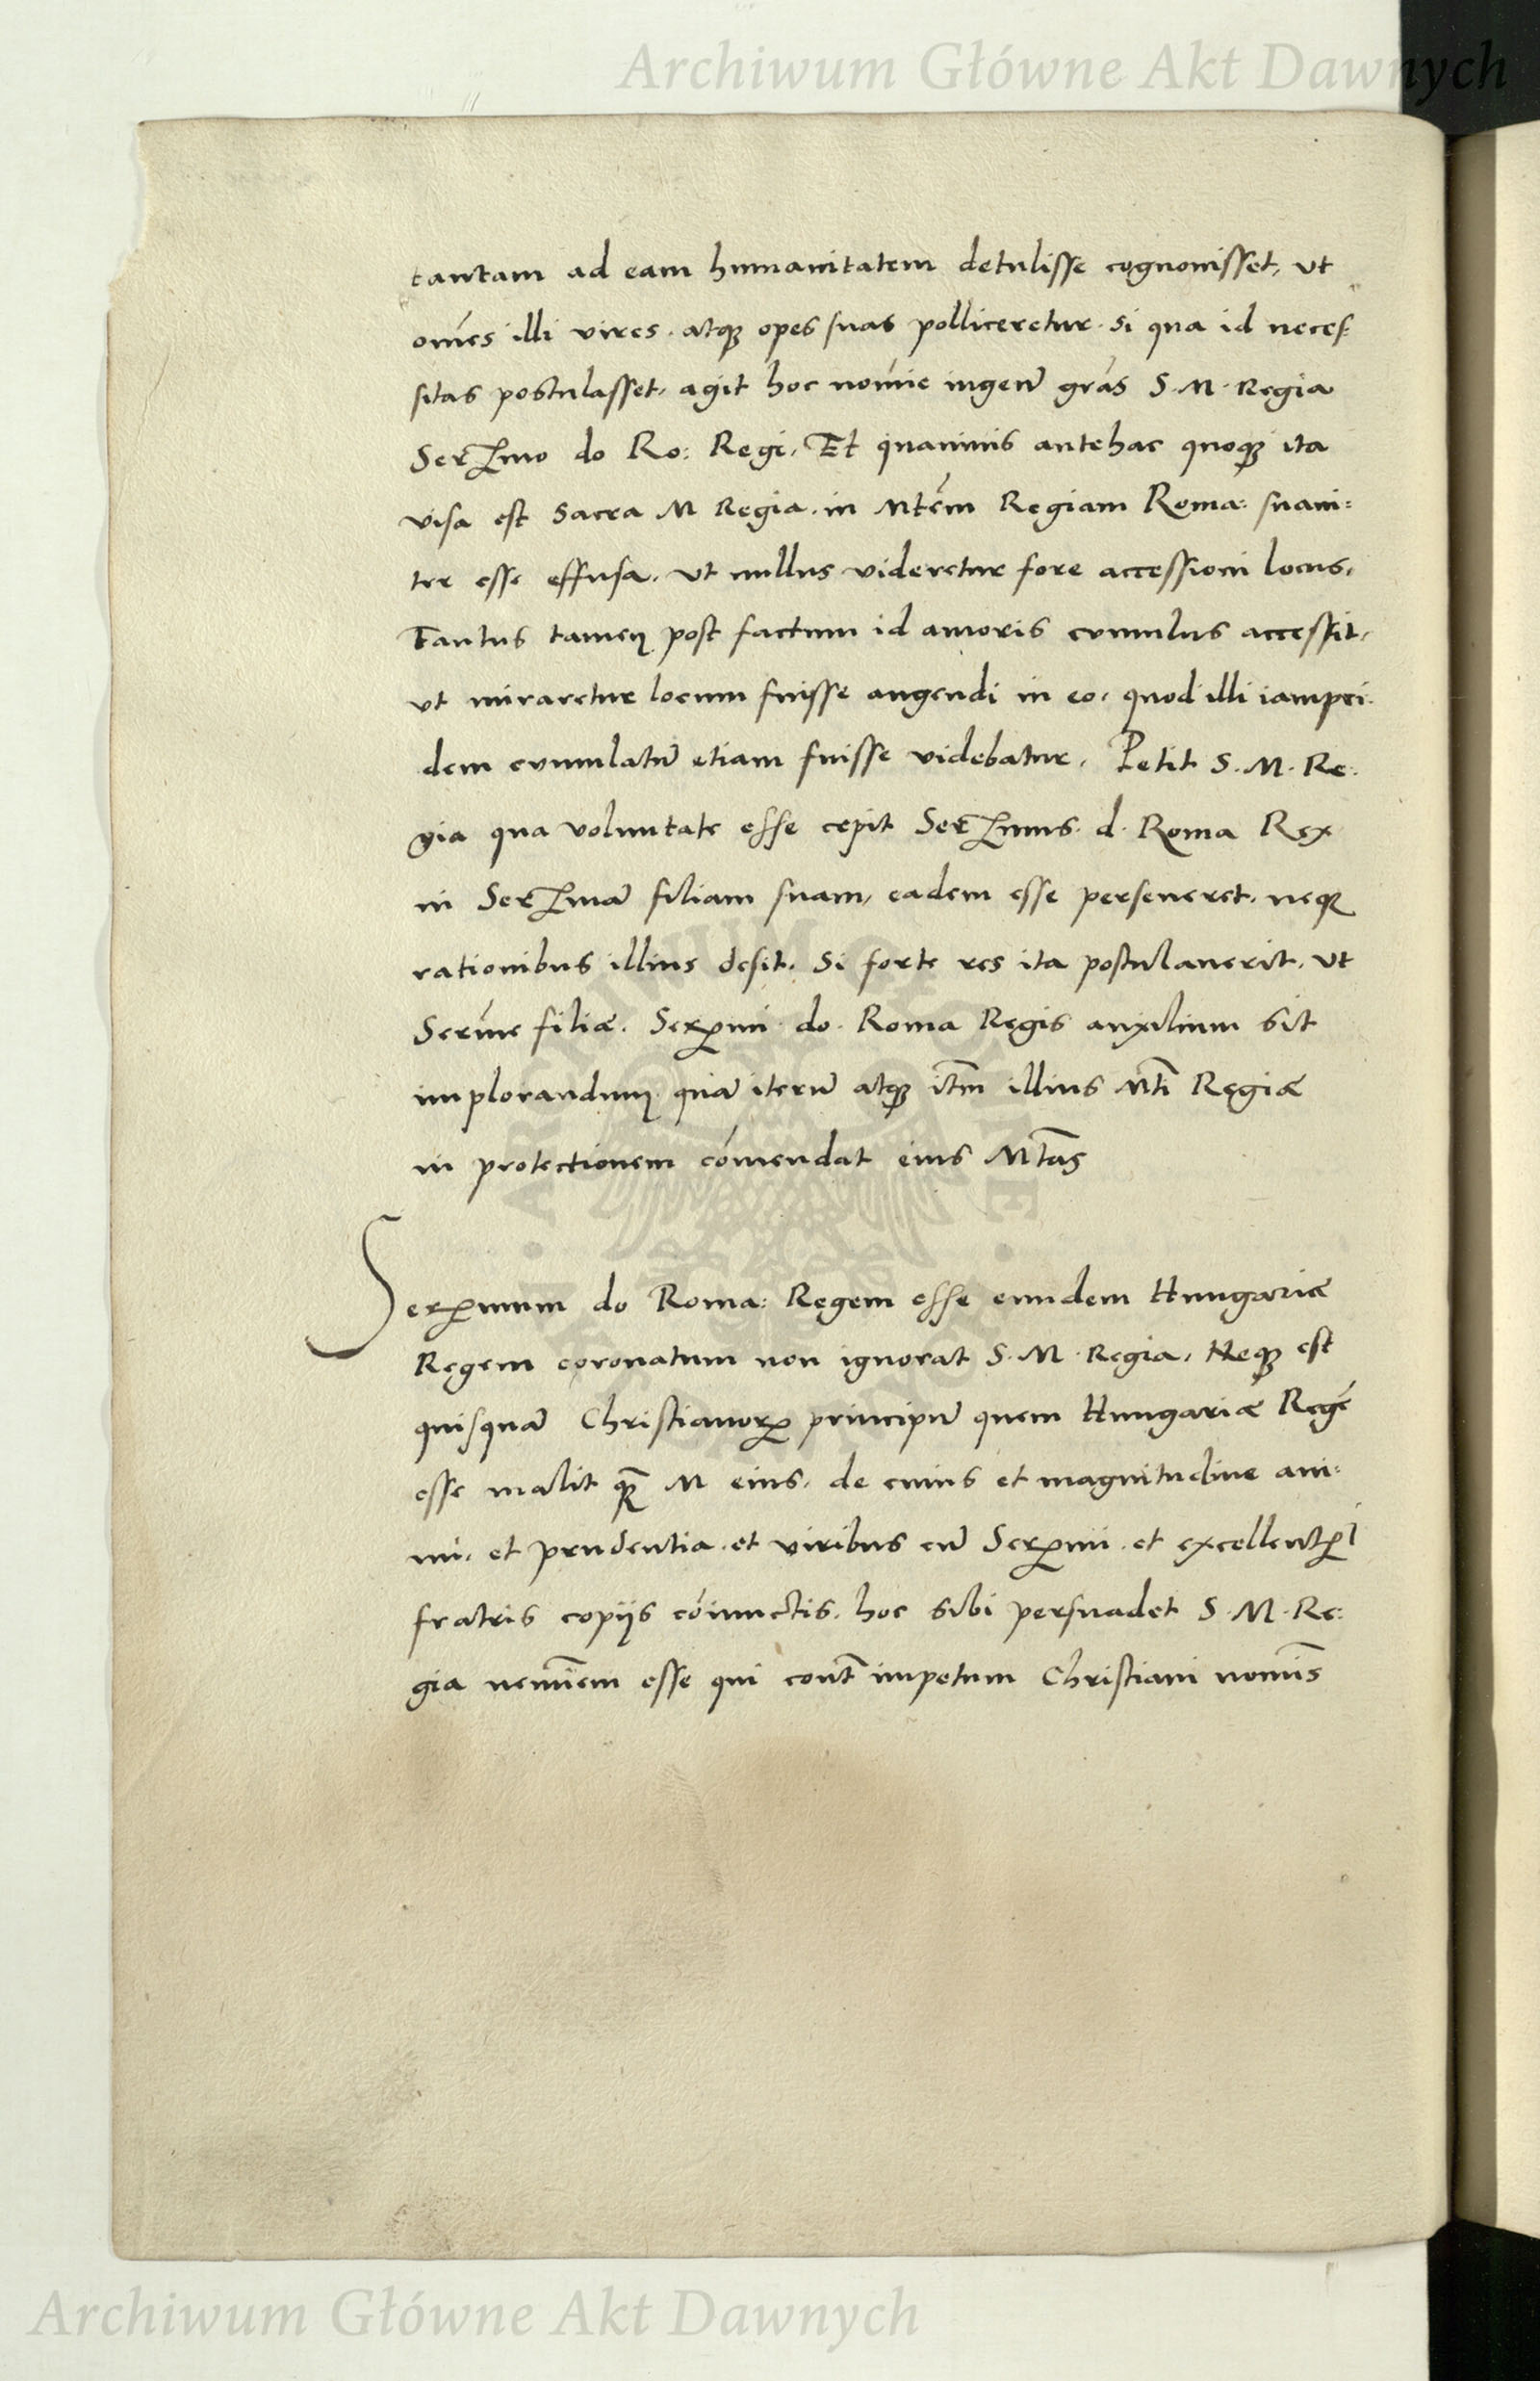 Archiwum Główne Akt Dawnych
tantam ad eam humanitatem detulisse cognouisset, ut
om̃es illi vires. atq; opes suas polliceretur. si qua id neces-
sitas postulasset, agit hoc nom̃ie ingeñ grãs S. M. Regia
Ser^mo do Ro: Regi, Et quamuis antehac quoq; ita
visa est Sacra M Regia. in Mtẽm Regiam Roma: suaui:
ter esse effusa, ut nullus videretur fore accessioni locus,
Tantus tamen post factum id amoris cumulus accessit,
ut miraretur locum fuisse augendi in eo, quod illi iampri-
dem cumulatũ etiam fuisse videbatur, Petit S. M. Re:
gia qua voluntate esse cepit Ser^mus d. Roma Rex
in Ser^mã filiam suam, eadem esse perseueret, neq;
rationibus illius desit, Si forte res ita postulauerit, ut
Serm̃e filiæ. Ser^mi do. Roma Regis auxilium sit
implorandum, quã iterũ atq; itm̃ illius Mti Regiæ
in protectionem cõmendat eius Mtas
Ser^mum do Roma: Regem esse eundem Hungariæ
Regem coronatum non ignorat S. M. Regia, Neq; est
quisquã Christianorꝝ principũ quem Hungariæ Regẽ
esse malit q̃ M eius, de cuius et magnitudine ani:
mi, et prudentia et viribus cũ Ser^mi et
fratris copijs cõiunctis, hoc sibi persuadet S. M. Re:
gia nemĩem esse qui cont̃ impetum Christiani nomĩs
Archiwum Główne Akt Dawnych